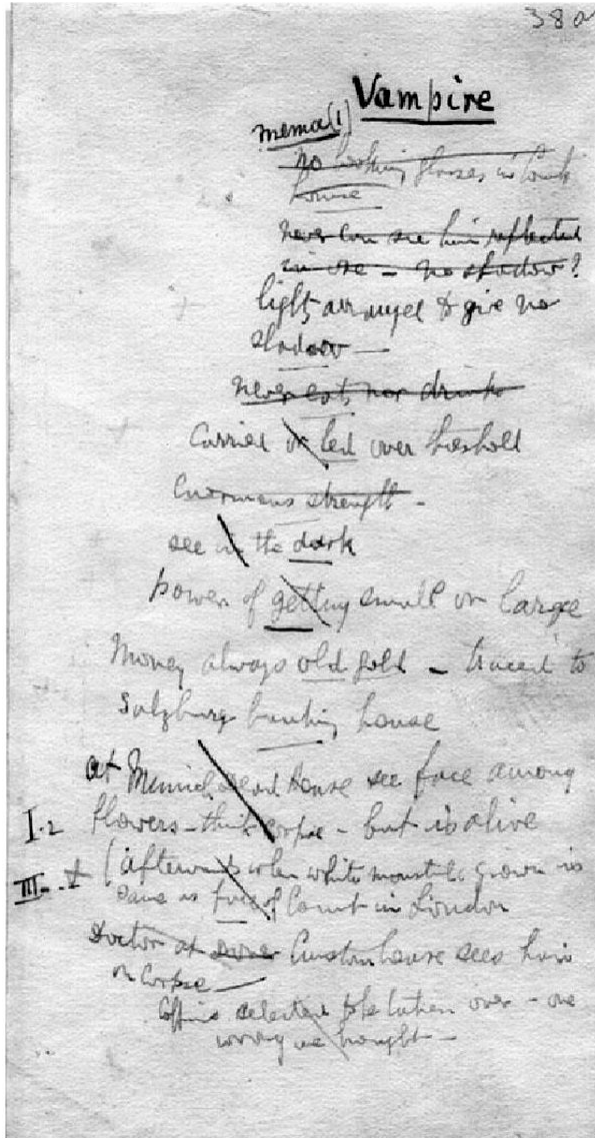 38a
Vampire
memo (1)
no looking glasses in Count's
house
never can see him reflected
in one - no shadow?
lights arranged to give no
shadow —
never eats nor drinks
Carried or led over threshold
Enormous strength -
see in the dark
power of getting small or large
Money always old gold - traced to
Salzburg banking house
at Munich Dead House see face among
I.2 flowers - think corpse - but is alive
III. (afterwards when white moustache grown is
same as face of Count in London
Doctor at Custom house sees him
or corpse —
Coffins selected to be taken over - one
wrong one brought —